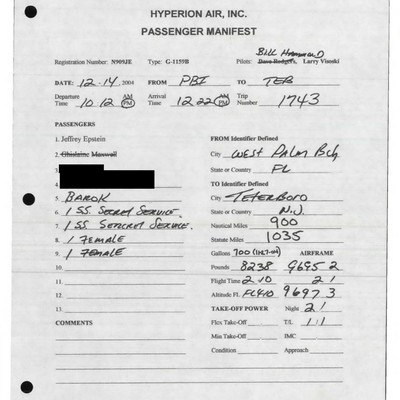 HYPERION AIR, INC.
PASSENGER MANIFEST
BILL HAMMOND
Registration Number: N909JE Type: G-1159B Pilots: Dave Rodgers, Larry Visoski
DATE: 12-14, 2004 FROM PBI TO TEB
Departure Time 10:12 AM PM Arrival Time 12:22 AM PM Trip Number 1743
PASSENGERS
1. Jeffrey Epstein FROM Identifier Defined
2. Ghislaine Maxwell City WEST PALM BCH
3. State or Country FL
4. TO Identifier Defined
5. BAROK City TETERBORO
6. 1 SS. SECRET SERVICE. State or Country N.J.
7. 1 SS. SECRET SERVICE. Nautical Miles 900
8. 1 FEMALE Statute Miles 1035
9. 1 FEMALE Gallons 700 AIRFRAME
10. Pounds 8238 9695 2
11. Flight Time 2 10 2 1
12. Altitude FL FL410 9697 3
13. TAKE-OFF POWER Night 2 1
COMMENTS Flex Take-Off T/L 1 1
Min Take-Off IMC
Condition Approach